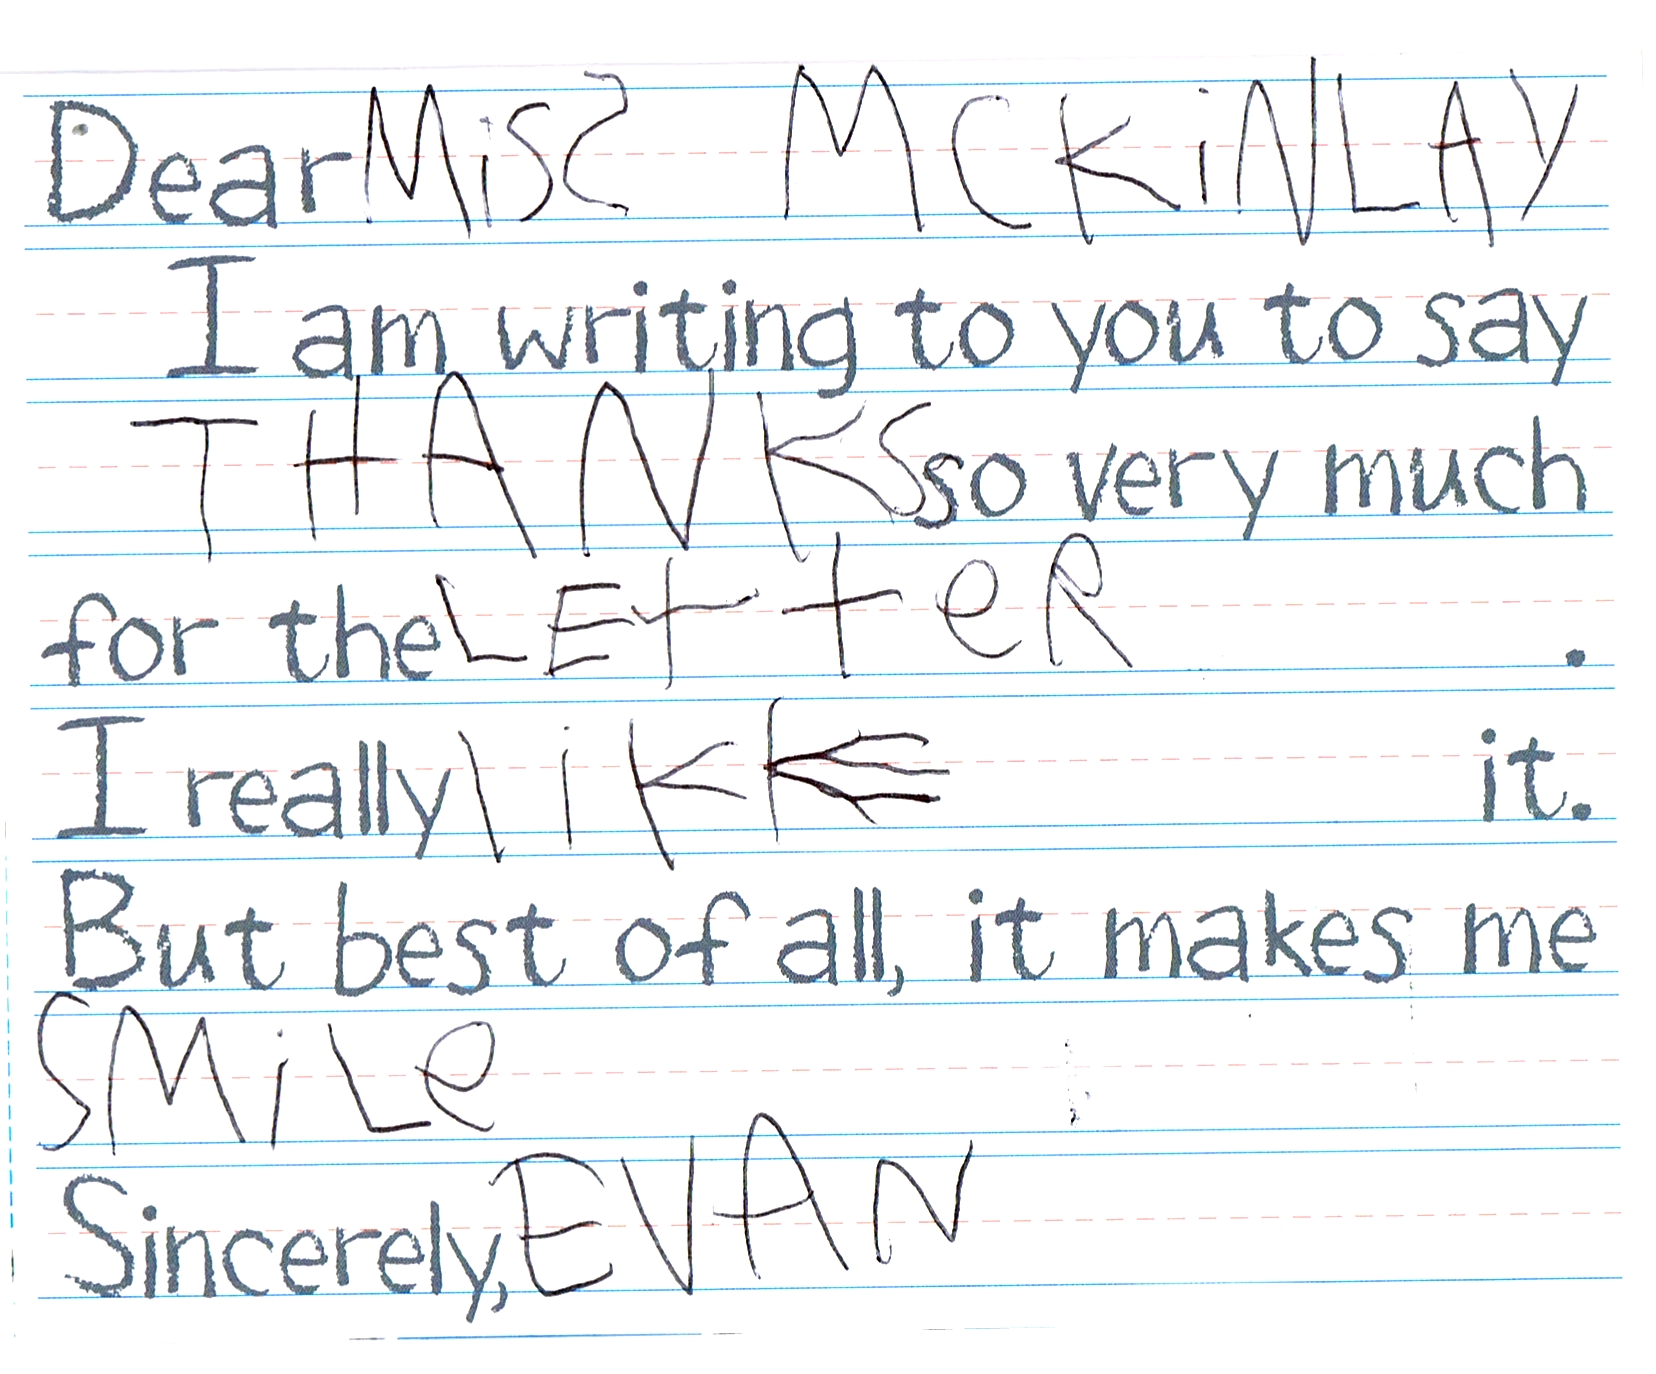 Dear MiSS MCKiNLAY
I am writing to you to say
THANKS so very much
for the LEtteR .
I really liKE it.
But best of all, it makes me
SMiLe
Sincerely, EVAN